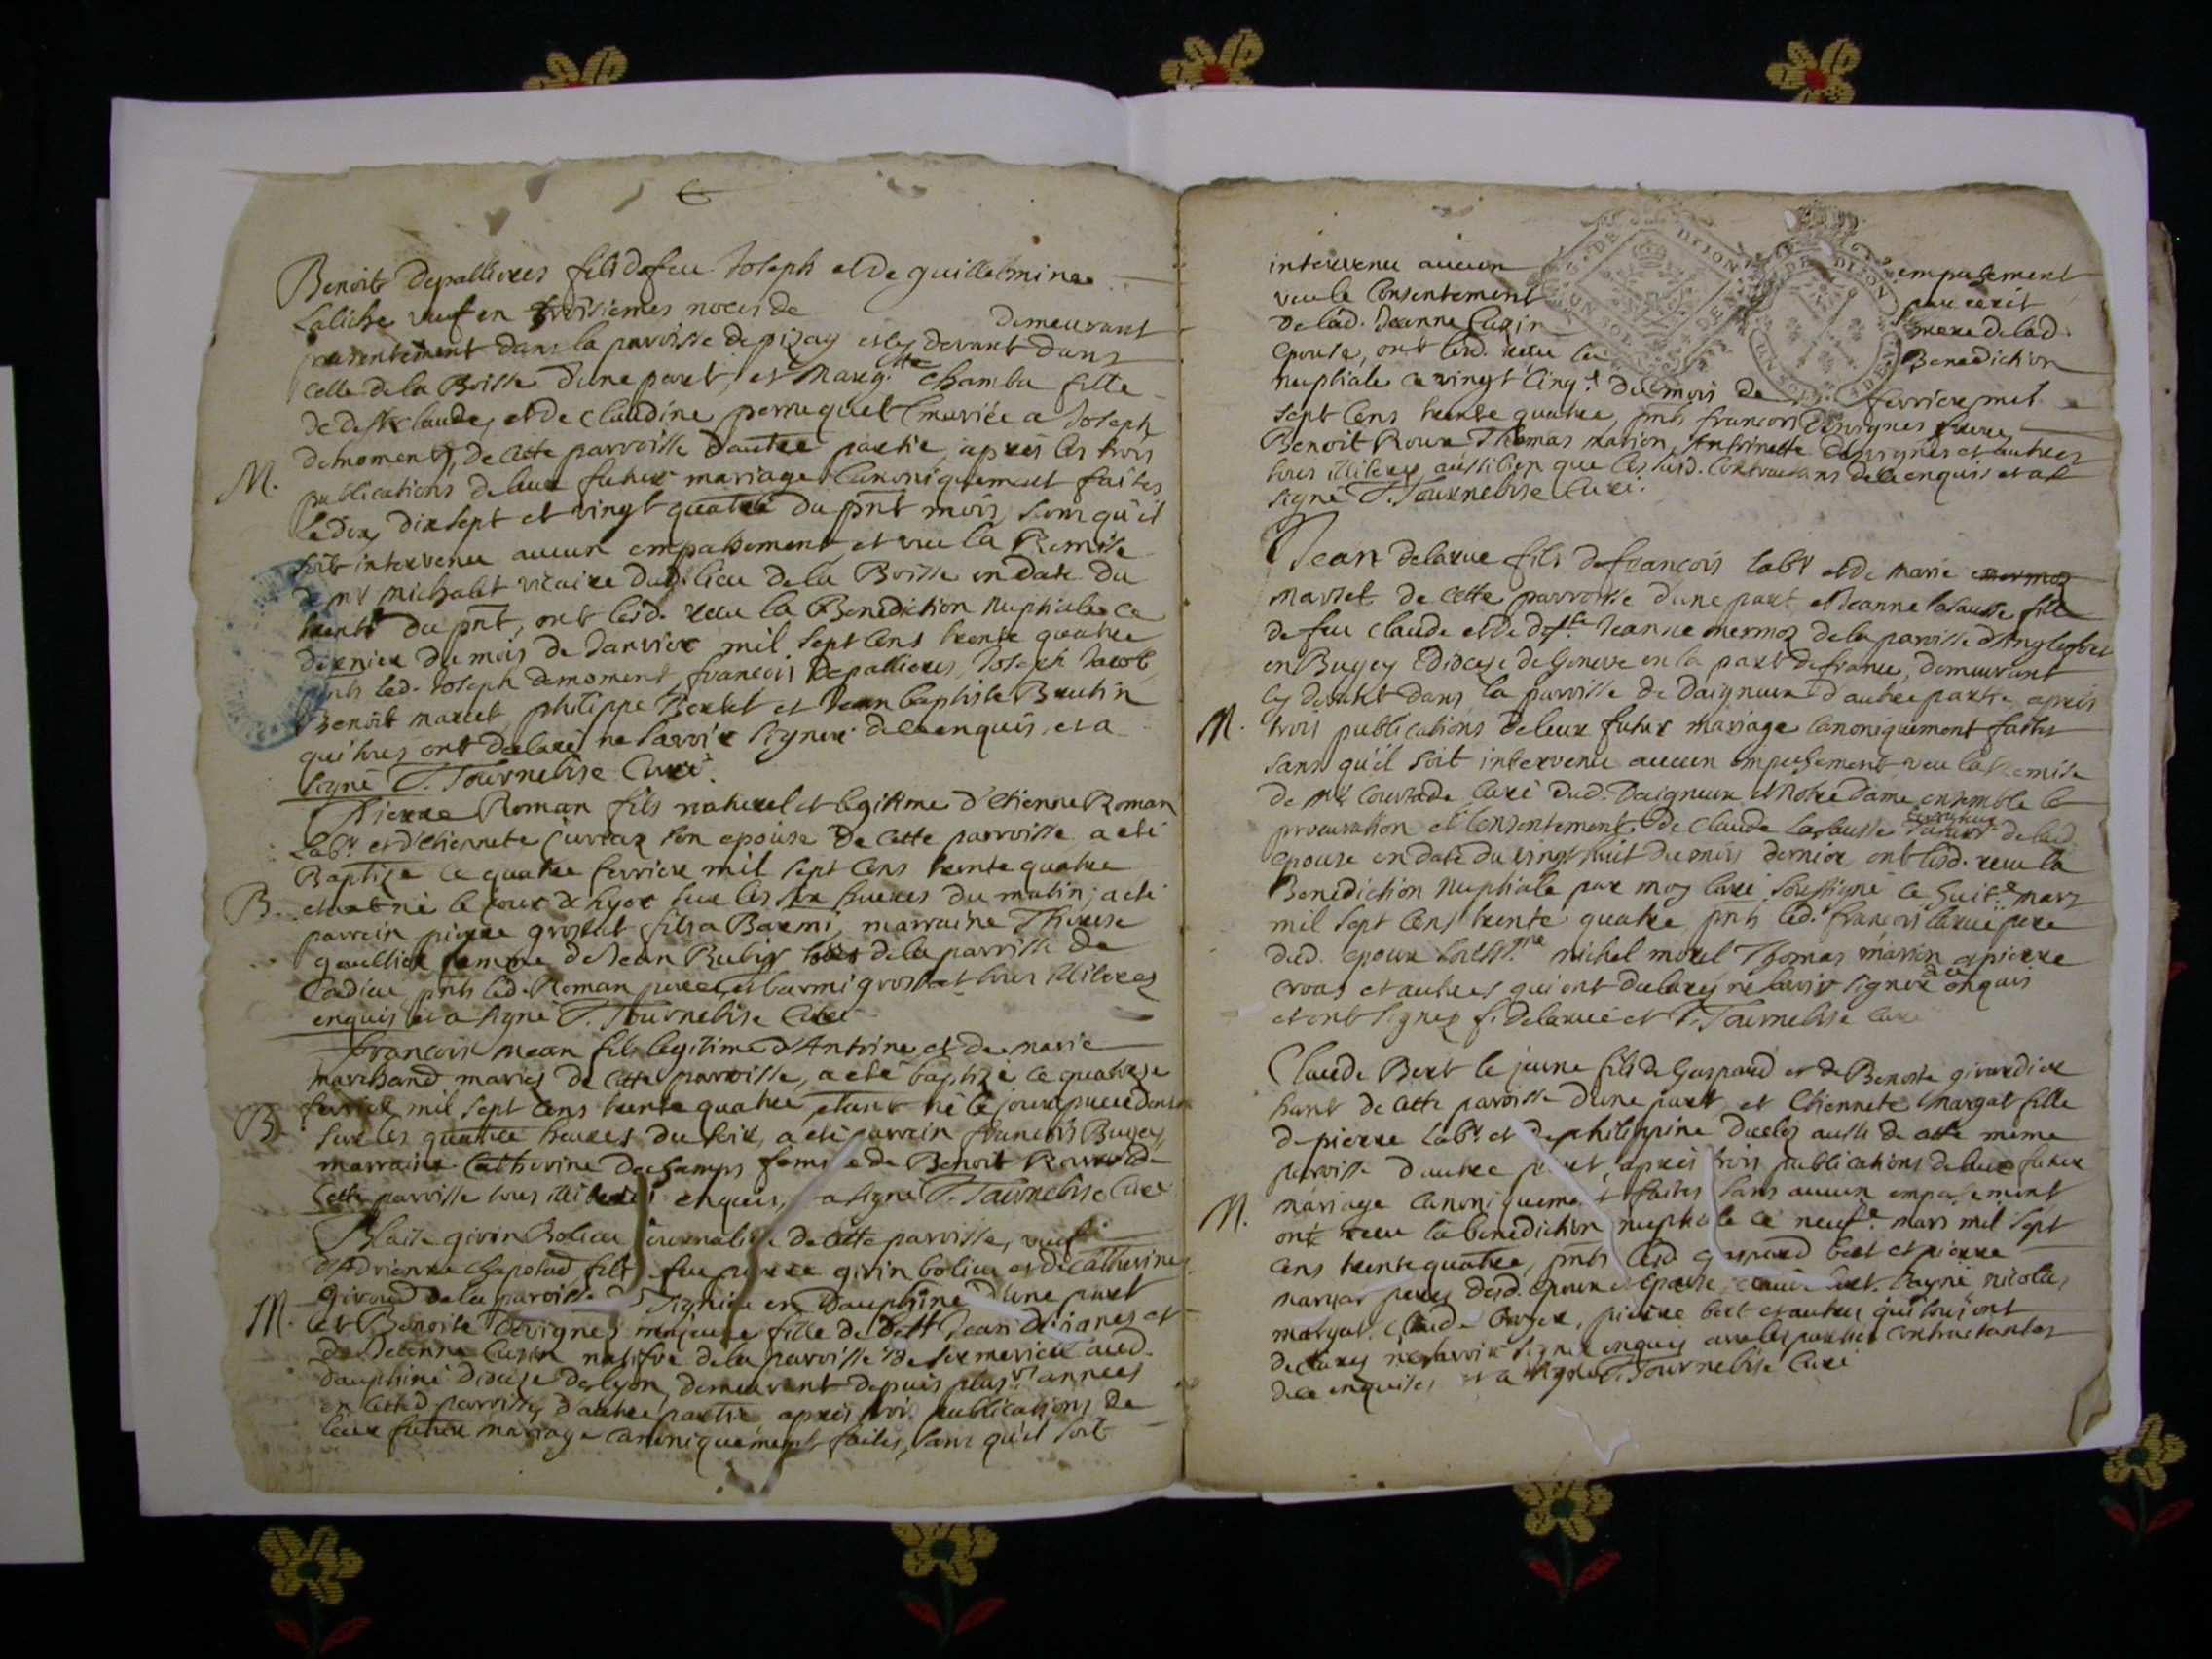 Benoit Depallieres fils de feu Joseph et de Guillelmine
Laliche veuf en troisiemes noces de demeurant
presentement dans la paroisse de pizay et cy devant dans
celle de la Boisse d'une part, et Marg.tte Chamba fille
de deft claude, et de claudine perruquet (mariée a Joseph
demoment), de cette parroisse d'autre partie, apres les trois
M. publications de leur futur mariage canoniquement faites
le dix, dix sept et vingt quatre du pnt mois, sans qu'il
soit intervenu aucun empachement, et veu la Remise
de mr michalet vicaire dud. lieu de la Boisse en date du
trente du pnt, ont lesd. receu la Benediction Nuptiale ce
dernier du mois de Janvier mil sept cens trente quatre
pnts led. Joseph demoment, francois Depallieres, Joseph Jacob,
Benoit marcet, philippe Berlet et Jean baptiste Brutin
qui tous ont declaré ne savoir signer de ce enquis, et a
signé T. Tournebise Curé.
Pierre Roman fils naturel et legitime d'Etienne Roman
Labr. et d'Etiennete son epouse de cette parroisse a eté
Baptizé ce quatre fevrier mil sept cens trente quatre
B. etant né le jour d'hyer sur les six heures du matin; a eté
parrein pierre groslat fils a Barmi, marraine Therese
gaultier femme de Jean Rubin tous de la parroisse de
Cadieu pnts led. Roman pere, et barmi groslat tous illiteres
enquis et a signé T. Tournebise Curé
francois mean fils legitime d'Antoine et de marie
marchand mariés de cette parroisse, a eté baptizé ce quatorze
fevrier mil sept cens trente quatre, etant né le jour precedent
B. sur les quatre heures du soir, a eté parrein francois Bugey,
marraine Catherine dechamps femme de Benoit Roux de
cette parroisse tous illiteres enquis, a signé T. Tournebise Curé
Blaise givin Bolieu journalier de cette paroisse, veuf
d'Adrienne Chapolad fils feu pierre givin bolieu et de Catherine
giroud de la paroisse de Tignieu en Dauphiné d'une part
M. et Benoite Devignes majeure fille de deft Jean devignes et
de Jeanne Cusin native de la paroisse de Siermerieu aud.
dauphiné diocese de lyon, demeurant depuis plusrs années
en cetted parroisse, d'autre partie, apres trois publications de
leur futur mariage canoniquement faites, sans qu'il soit
intervenu aucun empachement
veu le Consentement par ecrit
de lad. Jeanne Cusin mere de lad.
epouse, ont lesd. receu la Benediction
Nuptiale ce vingt cinqe du mois de fevrier mil
sept cens trente quatre, pnts francois Devignes frere,
Benoit Roux Thomas marion, Antoinette Devignes et autres
tous illiteres aussi bien que les susd. contractans de ce enquis et a
signé T. Tournebise Curé.
Jean delarue fils de francois labr et de marie mermoz
marcet de cette parroisse d'une part, et Jeanne lasausse fille
de feu claude et de defte Jeanne mermoz de la paroisse d'Anglefort
en Bugey Diocese de Geneve en la part de france, demeurant
cy devant dans la paroisse de daigneux d'autre partie, apres
M. trois publications de leur futur mariage canoniquement faites
sans qu'il soit intervenu aucun empachement, veu la Remise
de mr Courtade curé dud. Daigneux et notre dame, ensemble la
procuration et consentement de claude Lasausse de lad.
epouse en date du vingt huit du mois dernier, ont lesd. receu la
Benediction Nuptiale par moy curé soussigné ce huite mars
mil sept cens trente quatre, pnts led. francois larue pere
dud. epoux soussigné michel morel Thomas marion, pierre
croas et autres qui ont declarés ne savoir signer de ce enquis
et ont signez f. Delarue et T. Tournebise curé
Claude Bert le jeune fils de Gaspard et de Benoite girardier
hant de cette paroisse d'une part, et Etiennete margat fille
de pierre labr. et de philippine duclos aussi de cette meme
paroisse d'autre part, apres trois publications de leur futur
mariage canoniquement faites sans aucun empachement
M. ont receu la benediction nuptiale ce neufe mars mil sept
cens trente quatre, pnts lesd. gaspard bert et pierre
margat peres desd. epoux et epouse, bert. nicolas
margat, claude, pierre bert et autres qui tous ont
declarés ne savoir signer enquis avec les parties contractantes
de ce enquises et a signé T. Tournebise Curé
DE DIJON
UN SOL
DE DIJON
UN SOL